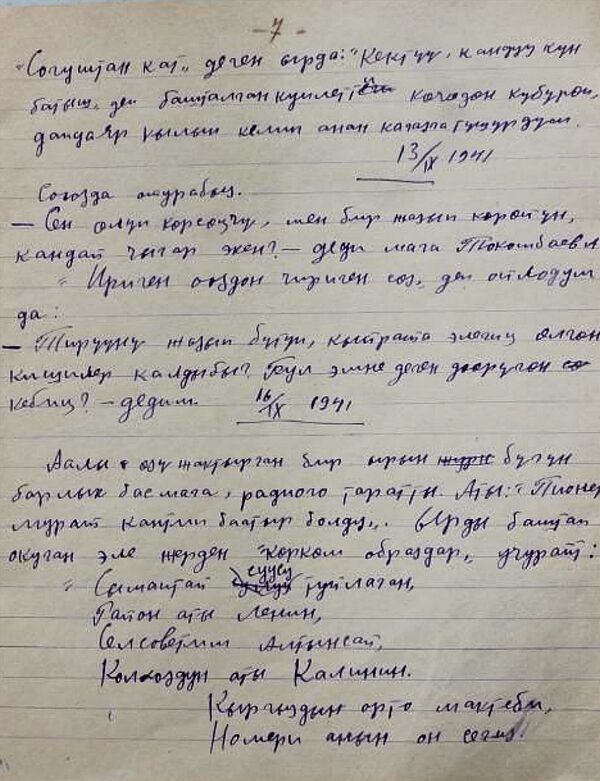 -7-
"Согуштан кат" деген ырда: "Кектүү, кандуу күн
батыш" деп башталган куплетти көчөдөн кубүрөп,
даңдаяр кылып келип анан кагазга түшүрдүм.
13/IX 1941
Союзда отурабыз.
— Сен өлүп көрсөңчү, мен бир жазып көрөйүн,
кандай чыгар экен? — деди мага Токомбаев А
"Ириген ооздон чириген сөз" деп ойлодум
да:
— Тирүүнү жазып бүтүп, кыйрата элегиң өлгөн
кишилер калдыбы? Бул эмне деген дөөрүгөн
кебиң? — дедим. 16/IX 1941
Аалы өзү жактырган бир ырын бүгүн
барлык басмага, радиого таратты. Аты: "Пионер
Мурат кантип баатыр болду". Ырды баштап
окуган эле жерден "көркөм образдар" учурайт:
"Сымаптай суусу туйлаган,
Район аты Ленин,
Селсоветим Алтынсай,
Колхоздун аты Калинин.
Кыргыздын орто мактеби,
Номери анын он сегиз